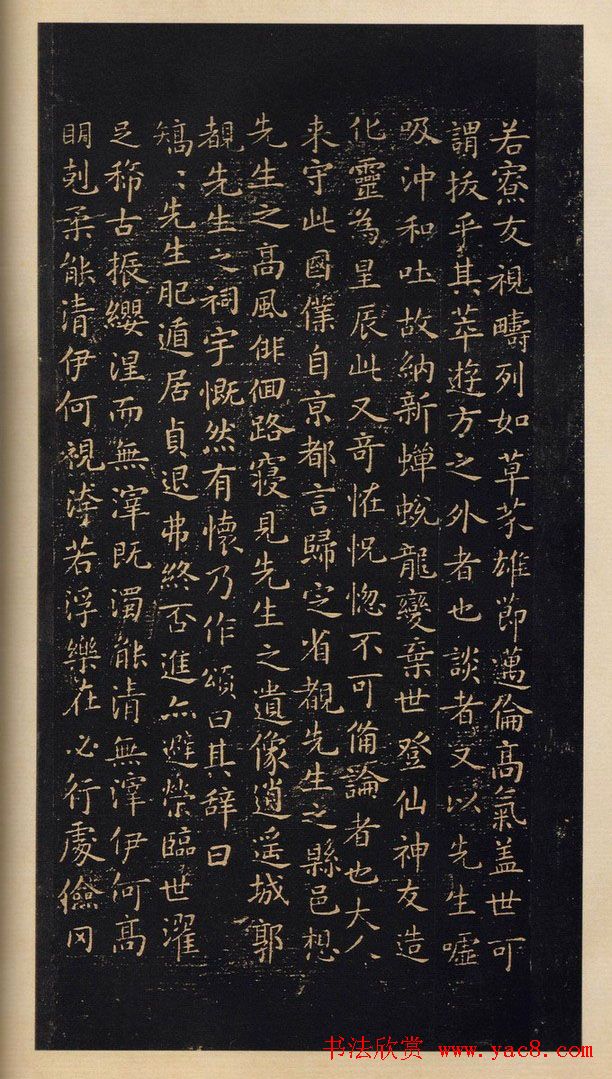 若寮友視疇列如草芥雄節邁倫高氣盖世可
謂拔乎其萃遊方之外者也談者又以先生噓
吸沖和吐故納新蟬蛻龍變棄世登仙神友造
化靈為星辰此又奇怪怳惚不可備論者也大人
来守此國僕自京都言歸定省覩先生之縣邑想
先生之高風俳佪路寢見先生之遺像逍遥城郭
覩先生之祠宇慨然有懷乃作頌曰其辞曰
矯〻先生肥遁居貞退弗終否進亦避榮臨世濯
足稀古振纓涅而無滓既濁能清無滓伊何高
明剋柔能清伊何視洿若浮樂在必行處儉罔
书法欣赏 www.yac8.com